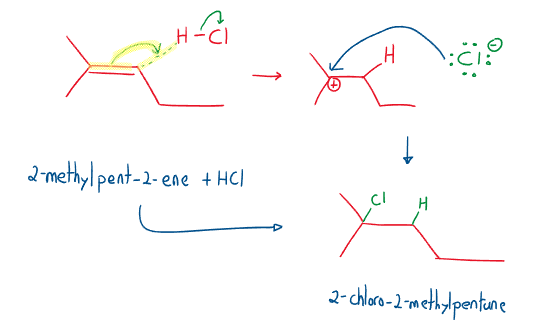 H-Cl
H
Cl ⊖
⊕
2-methylpent-2-ene + HCl
Cl H
2-chloro-2-methylpentane